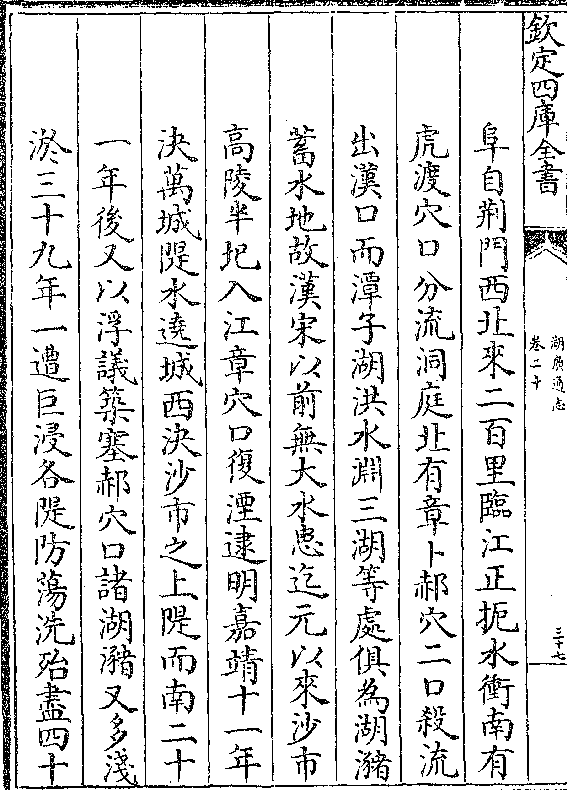 欽定四庫全書
湖廣通志
卷二十
三十七
阜自荆門西北來二百里臨江正扼水衝南有
虎渡穴口分流洞庭北有章卜郝穴二口殺流
出漢口而潭子湖洪水淵三湖等處俱為湖瀦
蓄水地故漢宋以前無大水患迄元以來沙市
高陵半圮入江章穴口復湮逮明嘉靖十一年
決萬城隄水遶城西決沙市之上隄而南二十
一年後又以浮議築塞郝穴口諸湖瀦又多淺
淤三十九年一遭巨浸各隄防蕩洗殆盡四十